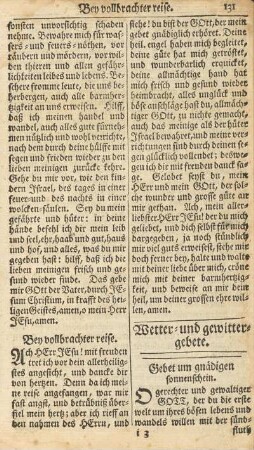 Bey vollbrachter reise. 131
sonsten unvorsichtig schaden
nehme. Bewahre mich für was-
sers- und feuers-nöthen, vor
räubern und mördern, vor wil-
den thieren und allen gefähr-
lichkeiten leibes und lebens. Be-
schehre fromme leute, die uns be-
herbergen, auch alle barmher-
tzigkeit an uns erweisen. Hilff,
daß ich meinen handel und
wandel, auch alles gute fürneh-
men nützlich und wohl verrichte,
nach dem durch deine hülffe mit
segen und frieden wieder zu den
lieben meinigen zurücke kehre.
Gehe du mit mir, wie vor den kin-
dern Israel, des tages in einer
feuer- und des nachts in einer
wolcken-säulen. Sey du mein
gefährte und hüter: in deine
hände befehl ich dir mein leib
und seel, ehr, haab und gut, hauß
und hof, und alles, was du mir
gegeben hast: hilff, daß ich die
lieben meinigen frisch und ge-
sund wieder finde. Das gebe
mir Gott der Vater, durch JE-
sum Christum, in krafft des heili-
ligen Geistes, amen, o mein HErr
JEsu, amen.
Bey vollbrachter reise.
ACh HErr JESU! mit freuden
tret ich vor dein allerheilig-
stes angesicht, und dancke dir
von hertzen. Denn da ich mei-
ne reise angefangen, war mir
fast angst, und betrübnüß überfiel
mein hertz; aber ich rieff an
den nahmen des HErrn, und
siehe! du bist der GOtt, der mein
gebet gnädiglich erhöret. Deine
heil. engel haben mich begleitet,
deine güte hat mich getröstet,
und wunderlich erhalten,
deine allmächtige hand hat
mich frisch und gesund erhal-
ten, alles unglück und
böse anschläge hast du, allmäch-
tiger GOtt, zu nichte gemacht,
auch das meinige als der hüter
Israel bewahret, und mein vor-
nehmen verrichtet durch deinen se-
gen glücklich vollendet: bewe-
gen ich dir mit freuden danck sa-
ge. Gelobet seyst du, mein
HErr und mein GOtt, der sol-
che wunder und grosse güte an
mir gethan. Ach, mein aller
liebster HErr JEsu! der du mich
geliebet, und dich selbst für
mich schändlichen sünder, der du
mir viel guts erweisest, siehe doch
mir ferner bey, halte und walte
mit deiner liebe über mich, kröne
mich mit deiner barmhertzig-
keit, und beweise an mir dein
heil, um deiner grossen ehre wil-
len, amen.
Wetter- und gewitter-
gebete.
Gebet um gnädigen
sonnenschein.
O Gerechter und gewaltiger
GOTT, der du die erste
welt um ihres bösen lebens und
wandels willen mit der sünd-
i 3 fluth